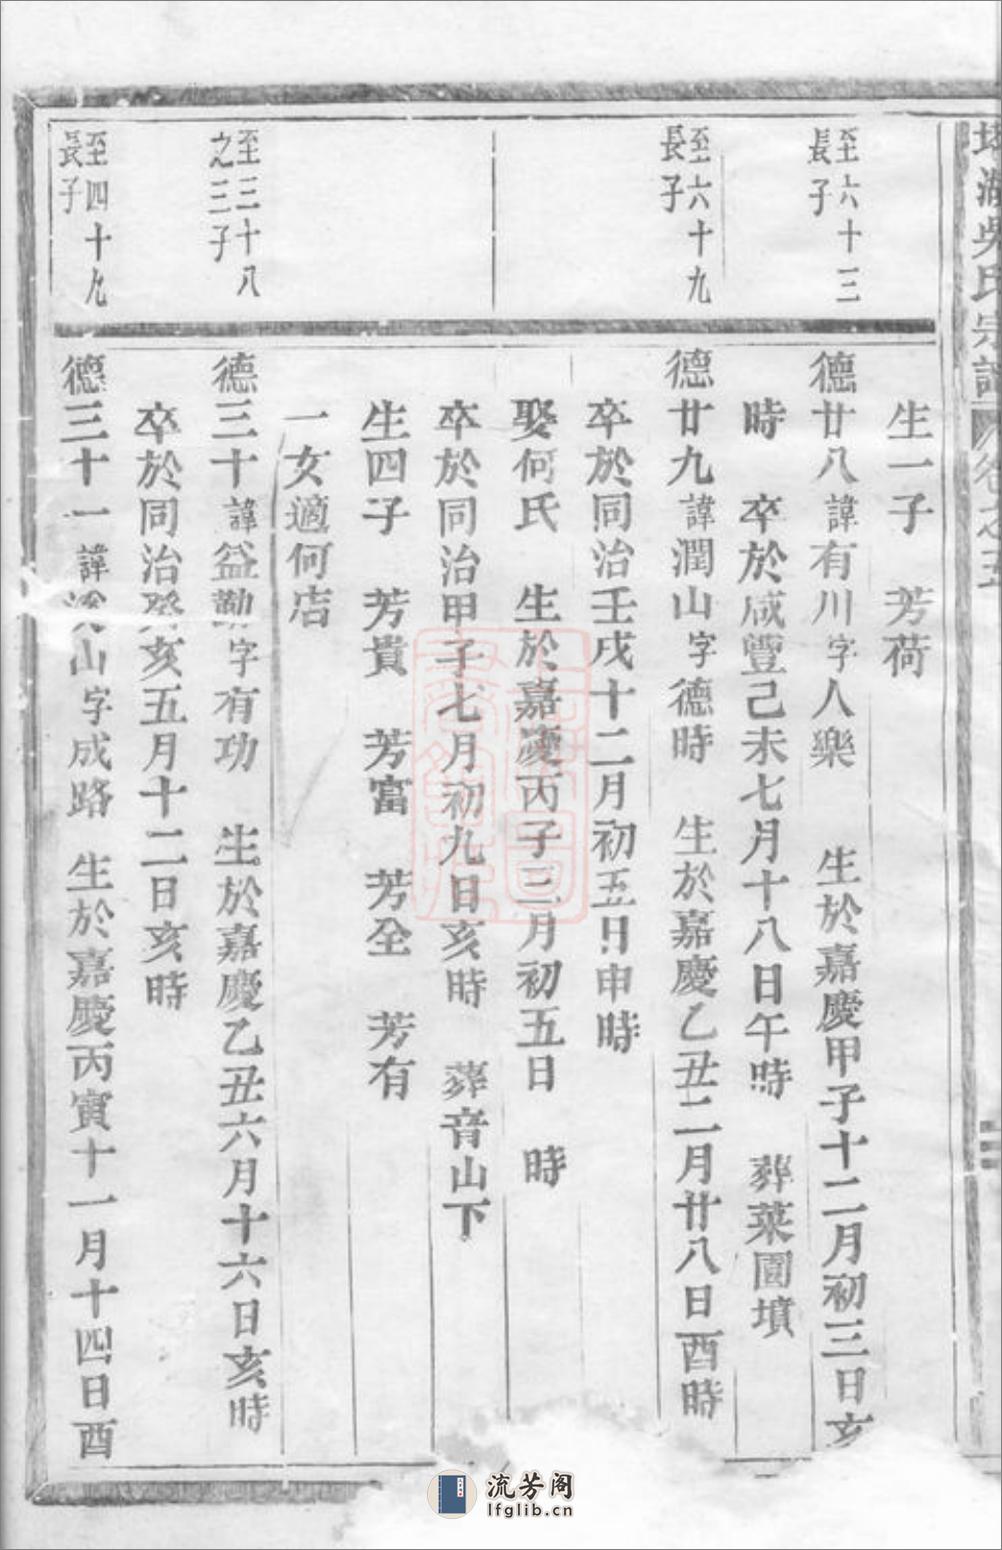 吳氏宗譜 卷之五
至六十三
長子
至六十九
長子
至三十八
之三子
至四十九
長子
生一子 芳荷
德廿八諱有川字人樂 生於嘉慶甲子十二月初三日亥
時 卒於咸豐己未七月十八日午時 葬菜園墳
德廿九諱潤山字德時 生於嘉慶乙丑二月廿八日酉時
卒於同治壬戌十二月初五日申時
娶何氏 生於嘉慶丙子三月初五日 時
卒於同治甲子七月初九日亥時 葬音山下
生四子 芳貴 芳富 芳全 芳有
一女適何店
德三十諱益勤字有功 生於嘉慶乙丑六月十六日亥時
卒於同治癸亥五月十二日亥時
德三十一諱山字成路 生於嘉慶丙寅十一月十四日酉
流芳阁
lfglib.cn